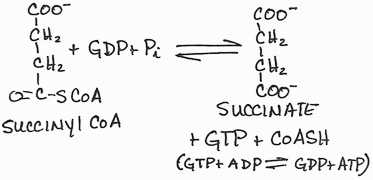 COO⁻
CH₂
CH₂
O=C-SCoA
SUCCINYL CoA
+ GDP + Pi ⇌
COO⁻
CH₂
CH₂
COO⁻
SUCCINATE
+ GTP + CoASH
(GTP + ADP ⇌ GDP + ATP)